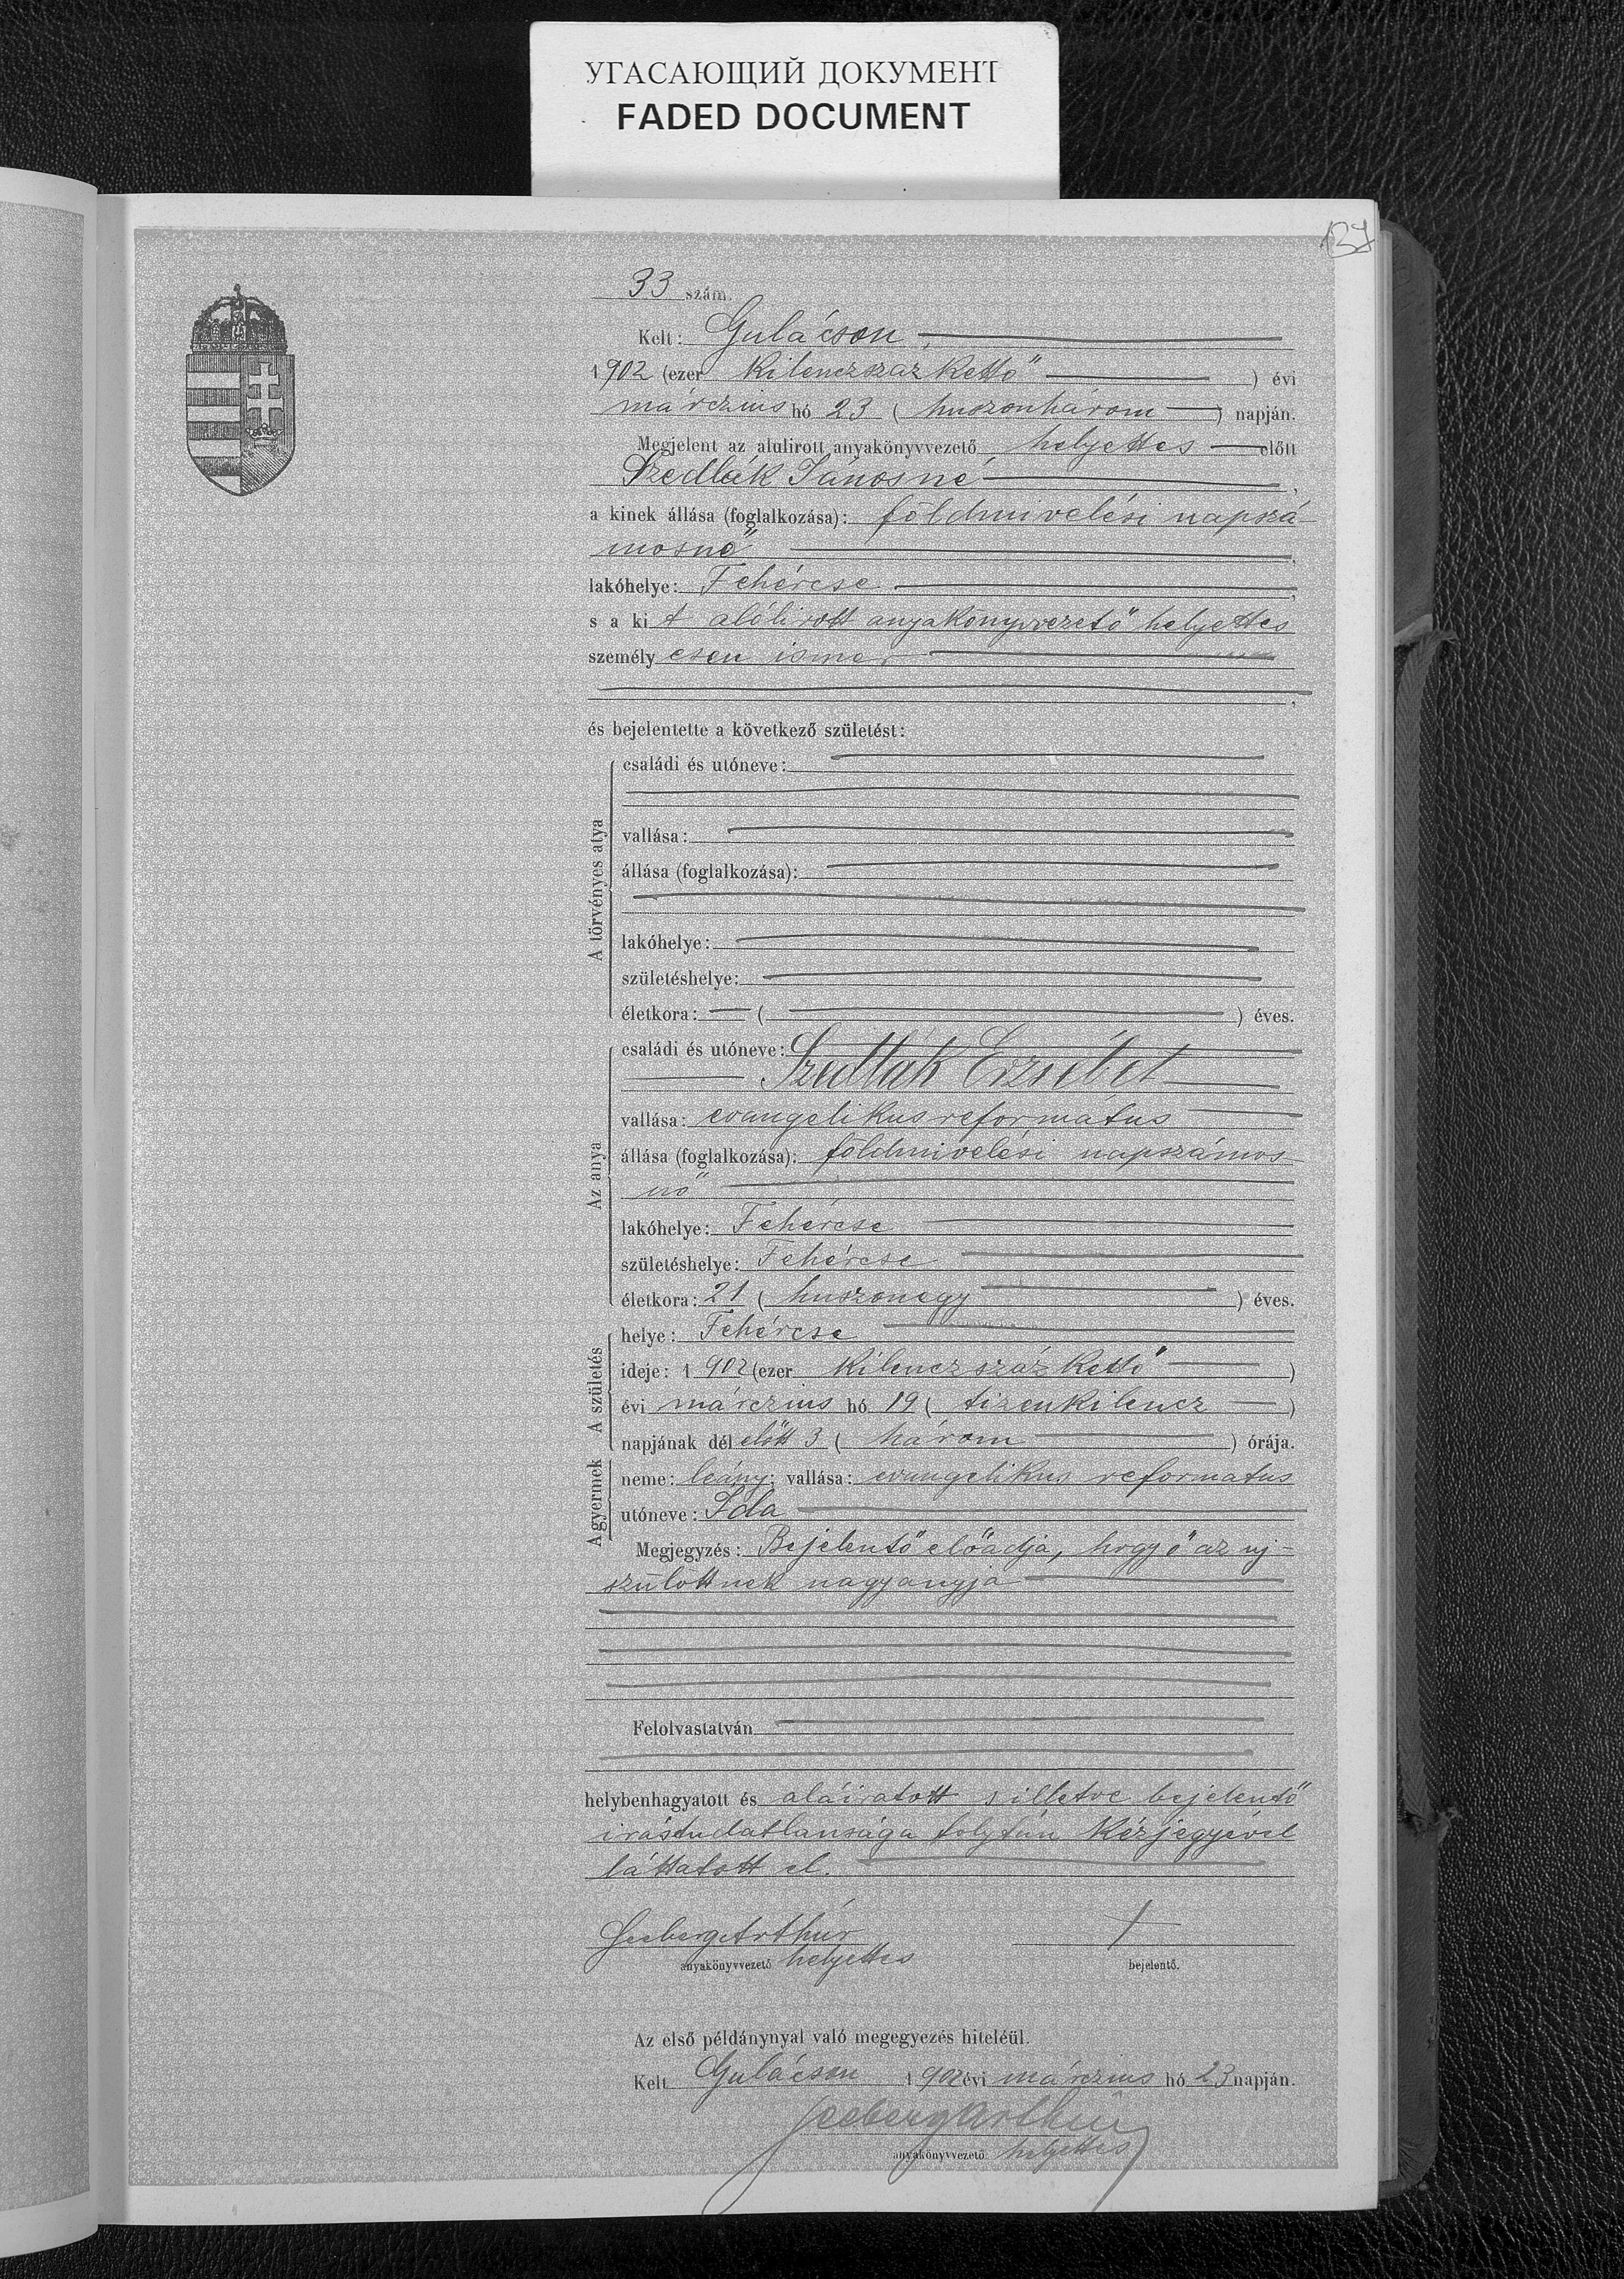 УГАСАЮЩИЙ ДОКУМЕНТ
FADED DOCUMENT
137
33 szám.
Kelt: Gulácson,
1902 (ezer kilenczszáz kettő) évi
márczius hó 23 (huszonhárom) napján.
Megjelent az alulirott anyakönyvvezető helyettes előtt
Szedlák Jánosné,
a kinek állása (foglalkozása): földmivelési napszá-
mosnő,
lakóhelye: Fehércse,
s a kit alólirott anyakönyvvezető helyettes
személyesen ismer
és bejelentette a következő születést:
A törvényes atya
családi és utóneve:
vallása:
állása (foglalkozása):
lakóhelye:
születéshelye:
életkora: ( ) éves.
Az anya
családi és utóneve:
Szedlák Erzsébet
vallása: evangelikus református
állása (foglalkozása): földmivelési napszámos
nő
lakóhelye: Fehércse
születéshelye: Fehércse
életkora: 21 (huszonegy) éves.
A születés
helye: Fehércse
ideje: 1902 (ezer kilenczszáz kettő)
évi márczius hó 19 (tizenkilencz)
napjának délelőtt 3 (három) órája.
A gyermek
neme: leány; vallása: evangelikus reformatus
utóneve: Ida
Megjegyzés: Bejelentő előadja, hogy ő az uj-
szülöttnek nagyanyja
Felolvastatván
helybenhagyatott és aláiratott s illetve bejelentő
irástudatlansága folytán kézjegyével
láttatott el.
Seeberg Arthúr +
anyakönyvvezető helyettes bejelentő.
Az első példánynyal való megegyezés hiteléül.
Kelt Gulácson 1902 évi márczius hó 23 napján.
Seeberg Arthúr
anyakönyvvezető helyettes